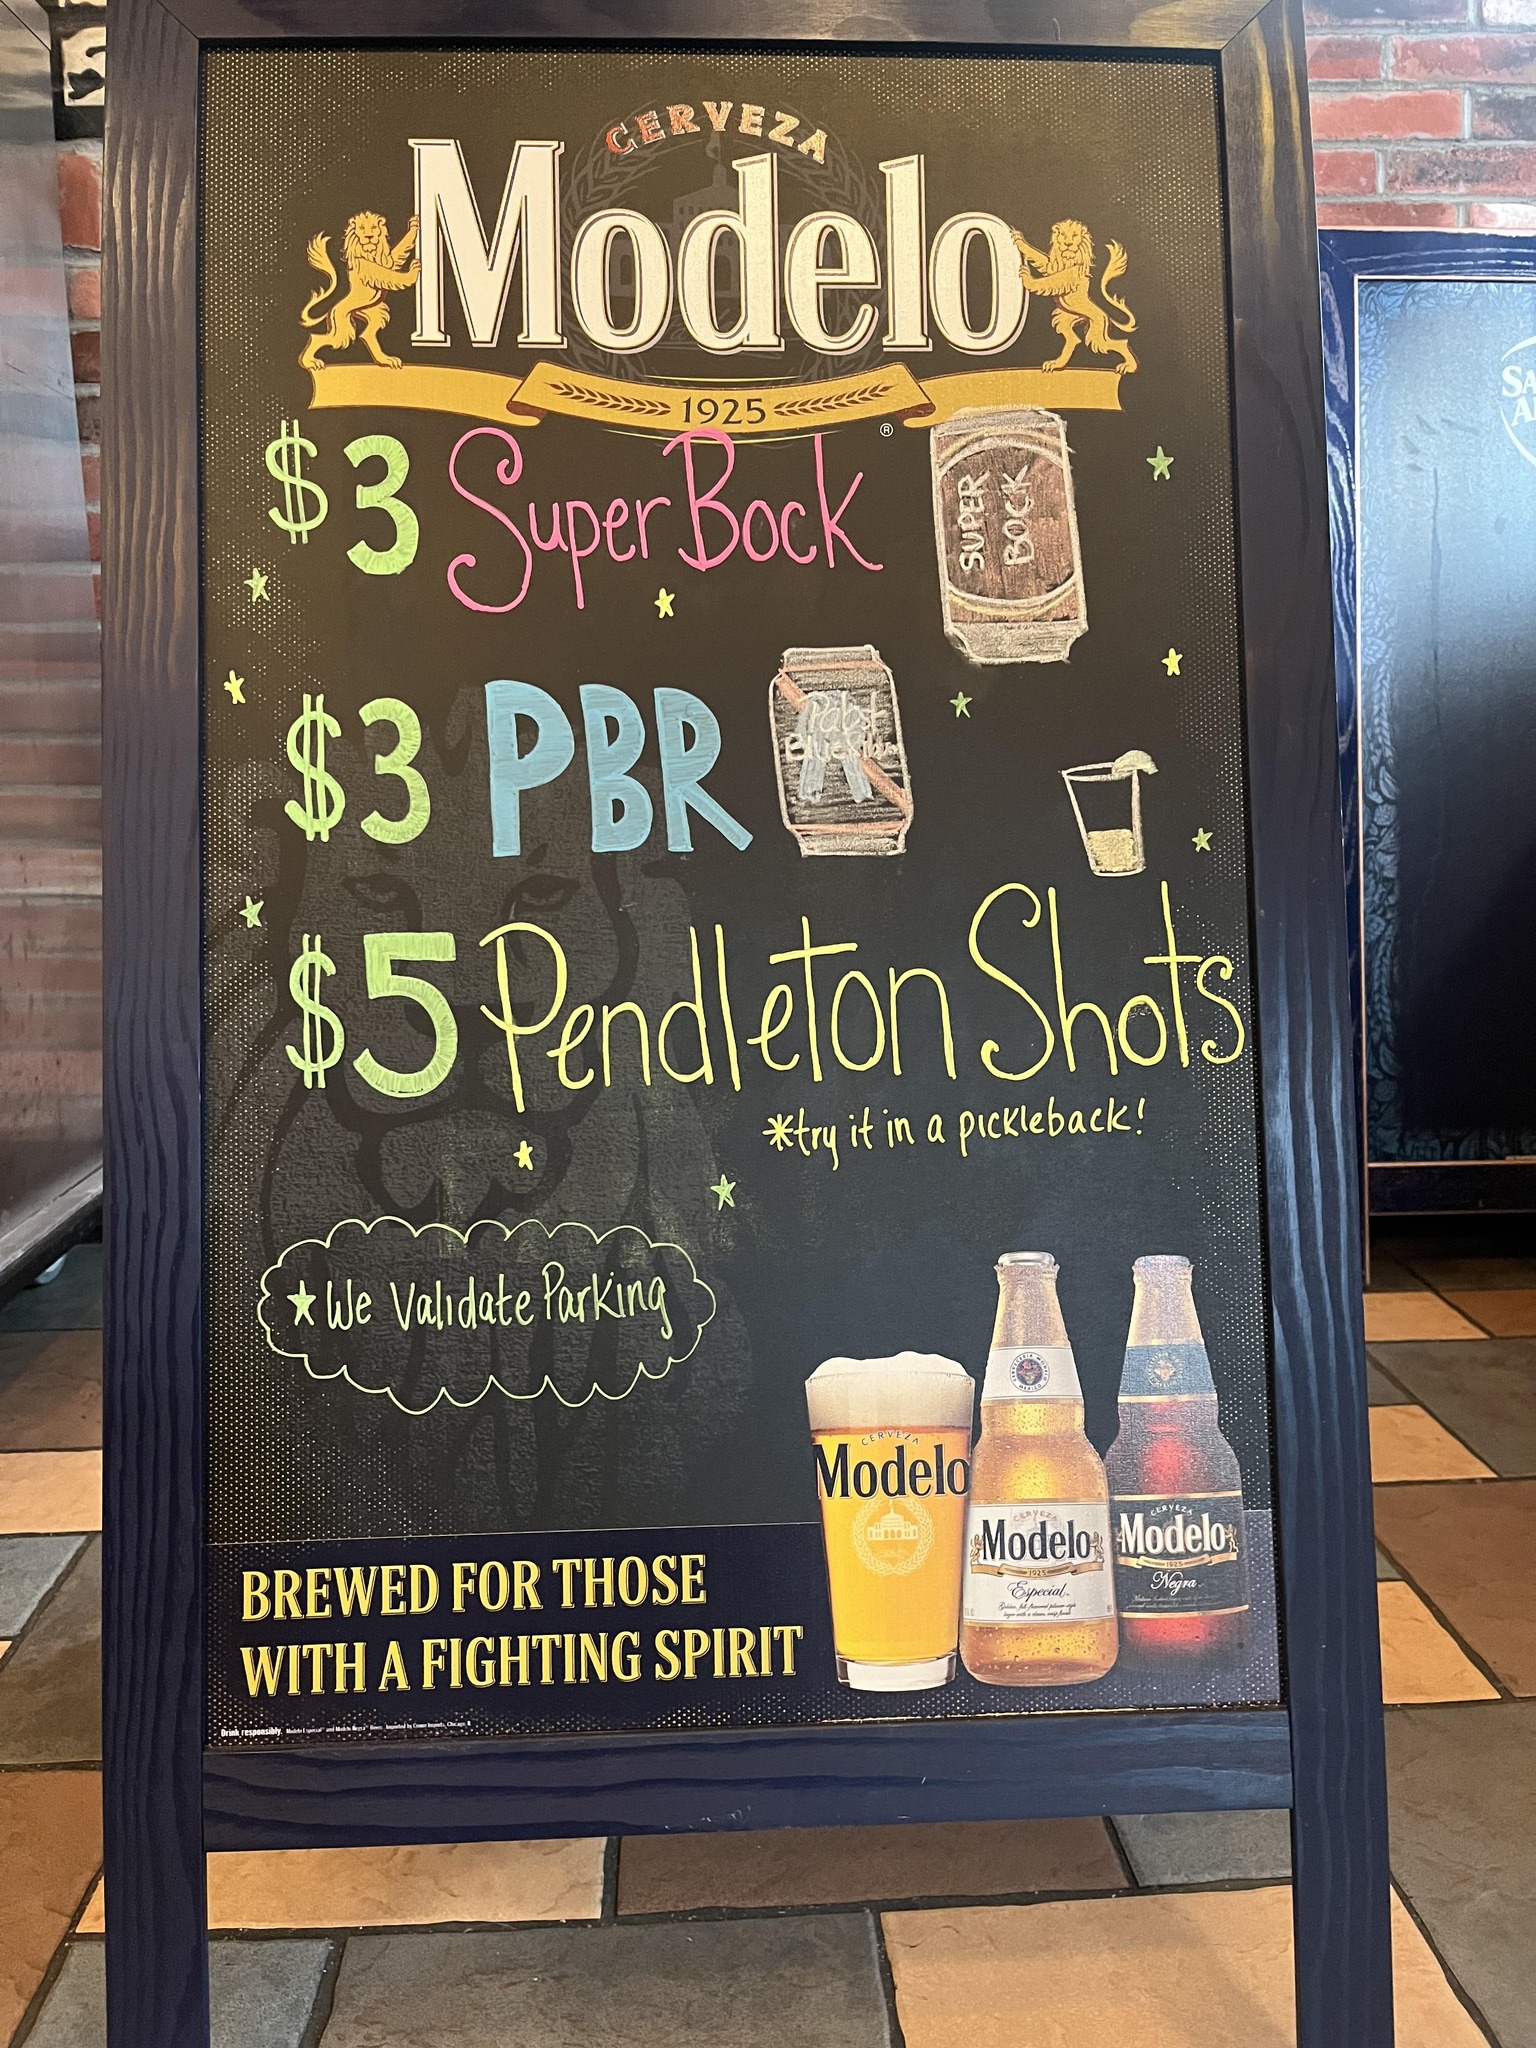 CERVEZA
Modelo
1925
®
$3 Super Bock
SUPER
BOCK
$3 PBR
Pabst
$5 Pendleton Shots
*try it in a pickleback!
★ We Validate Parking
CERVEZA
Modelo
CERVEZA
Modelo
1925
Especial
CERVEZA
Modelo
1925
Negra
BREWED FOR THOSE
WITH A FIGHTING SPIRIT
Drink responsibly.